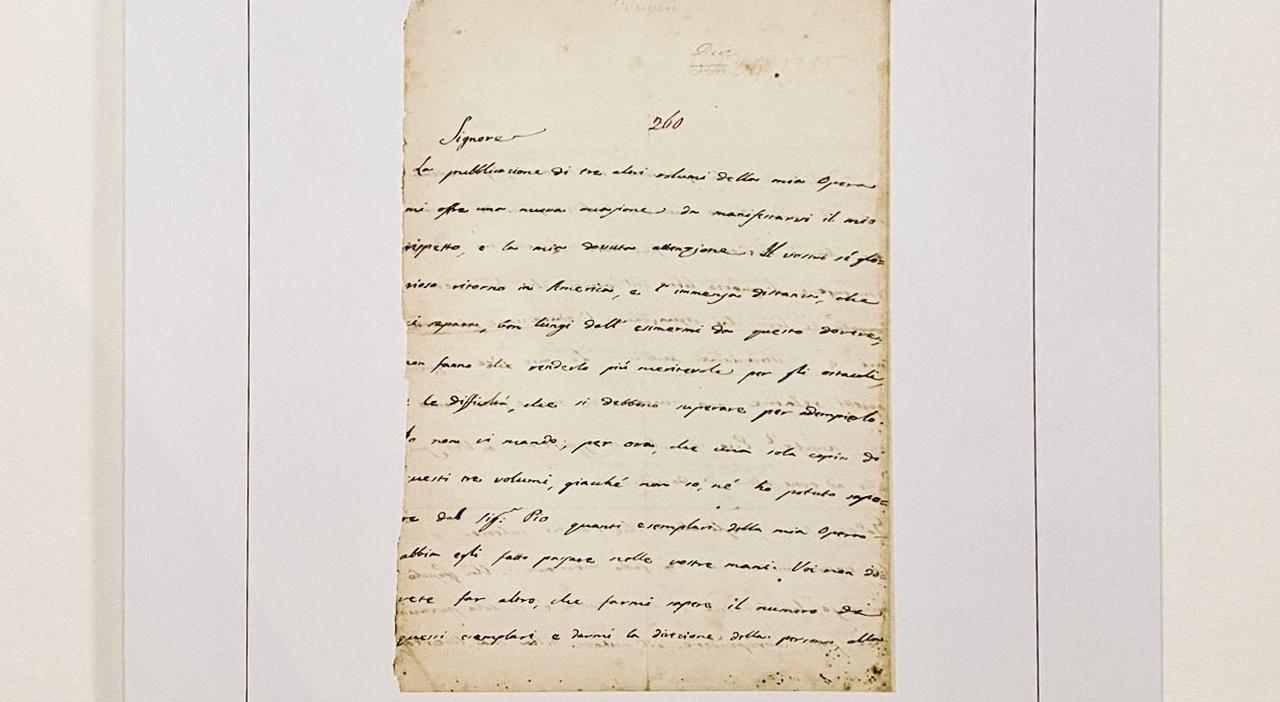 260
Signore
La pubblicazione di tre altri volumi della mia Opera
mi offre una nuova occasione da manifestarvi il mio
rispetto, e la mia dovuta attenzione. Il vostro sì glo=
rioso ritorno in America, e l'immensa distanza, che
ci separa, ben lungi dall'esimermi da questo dovere,
non fanno che renderlo più meritevole per gli ostacoli,
e le difficoltà, che si debbono superare per adempierlo.
Io non vi mando, per ora, che una sola copia di
questi tre volumi, giacché non so, né ho potuto sape=
re dal Sig.r Pio quanti esemplari della mia Opera
abbia egli fatto passare nelle vostre mani. Voi non do=
vete far altro, che farmi sapere il numero di
questi esemplari e darmi la direzione della persona, alla